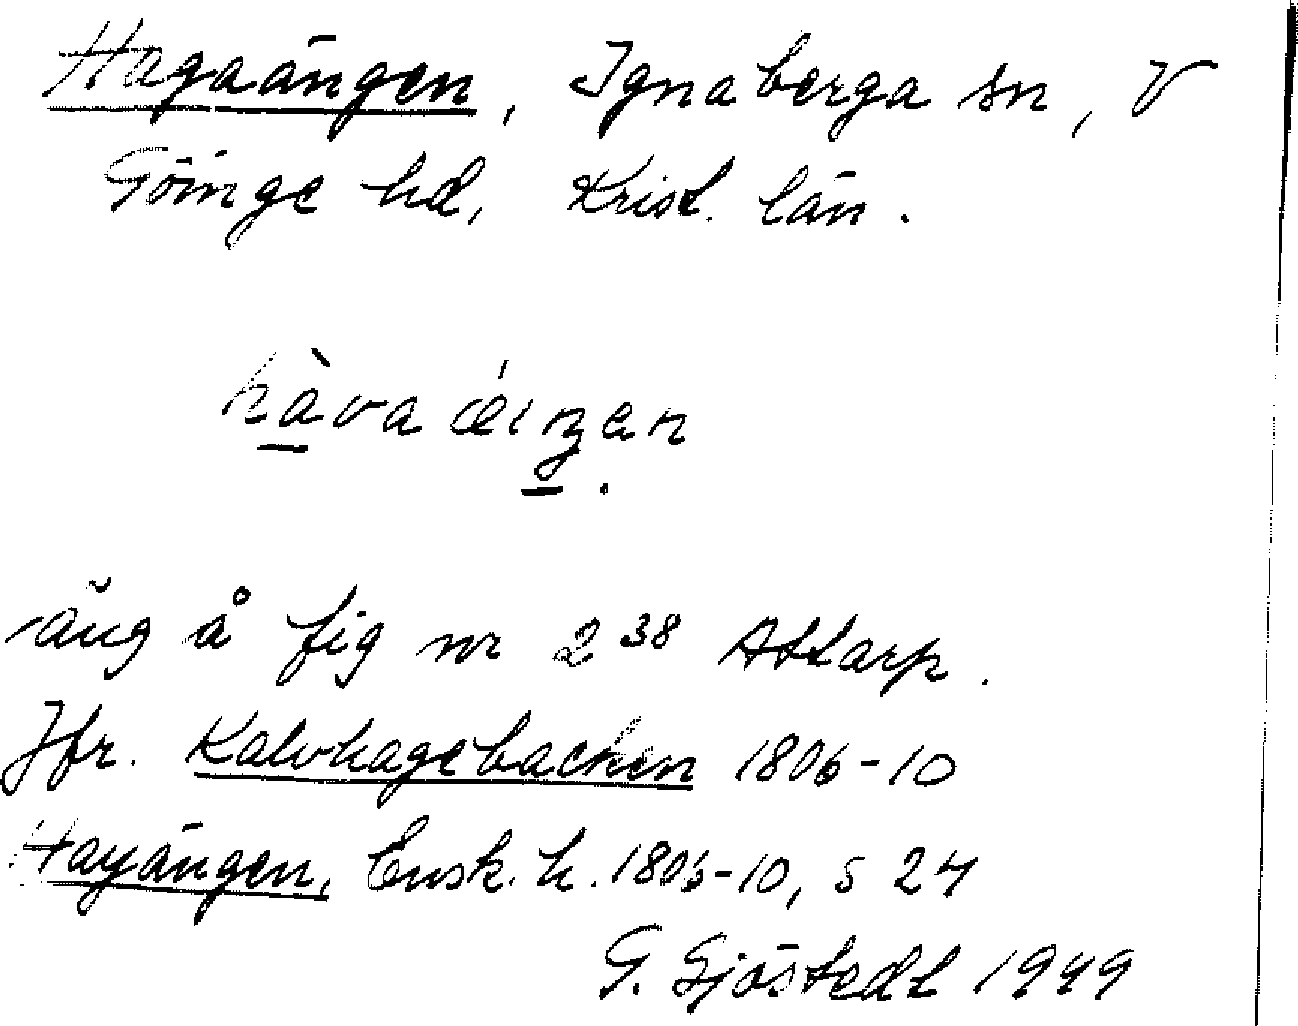 Hagaängen, Ignaberga sn, V
Göinge hd, Krist. län.
hàva ǽiŋen
äng å fig nr 2 38 Attarp.
Jfr. Kalvhagebacken 1806-10
Hayängen, Ensk. h. 1806-10, s 24
G. Sjöstedt 1949